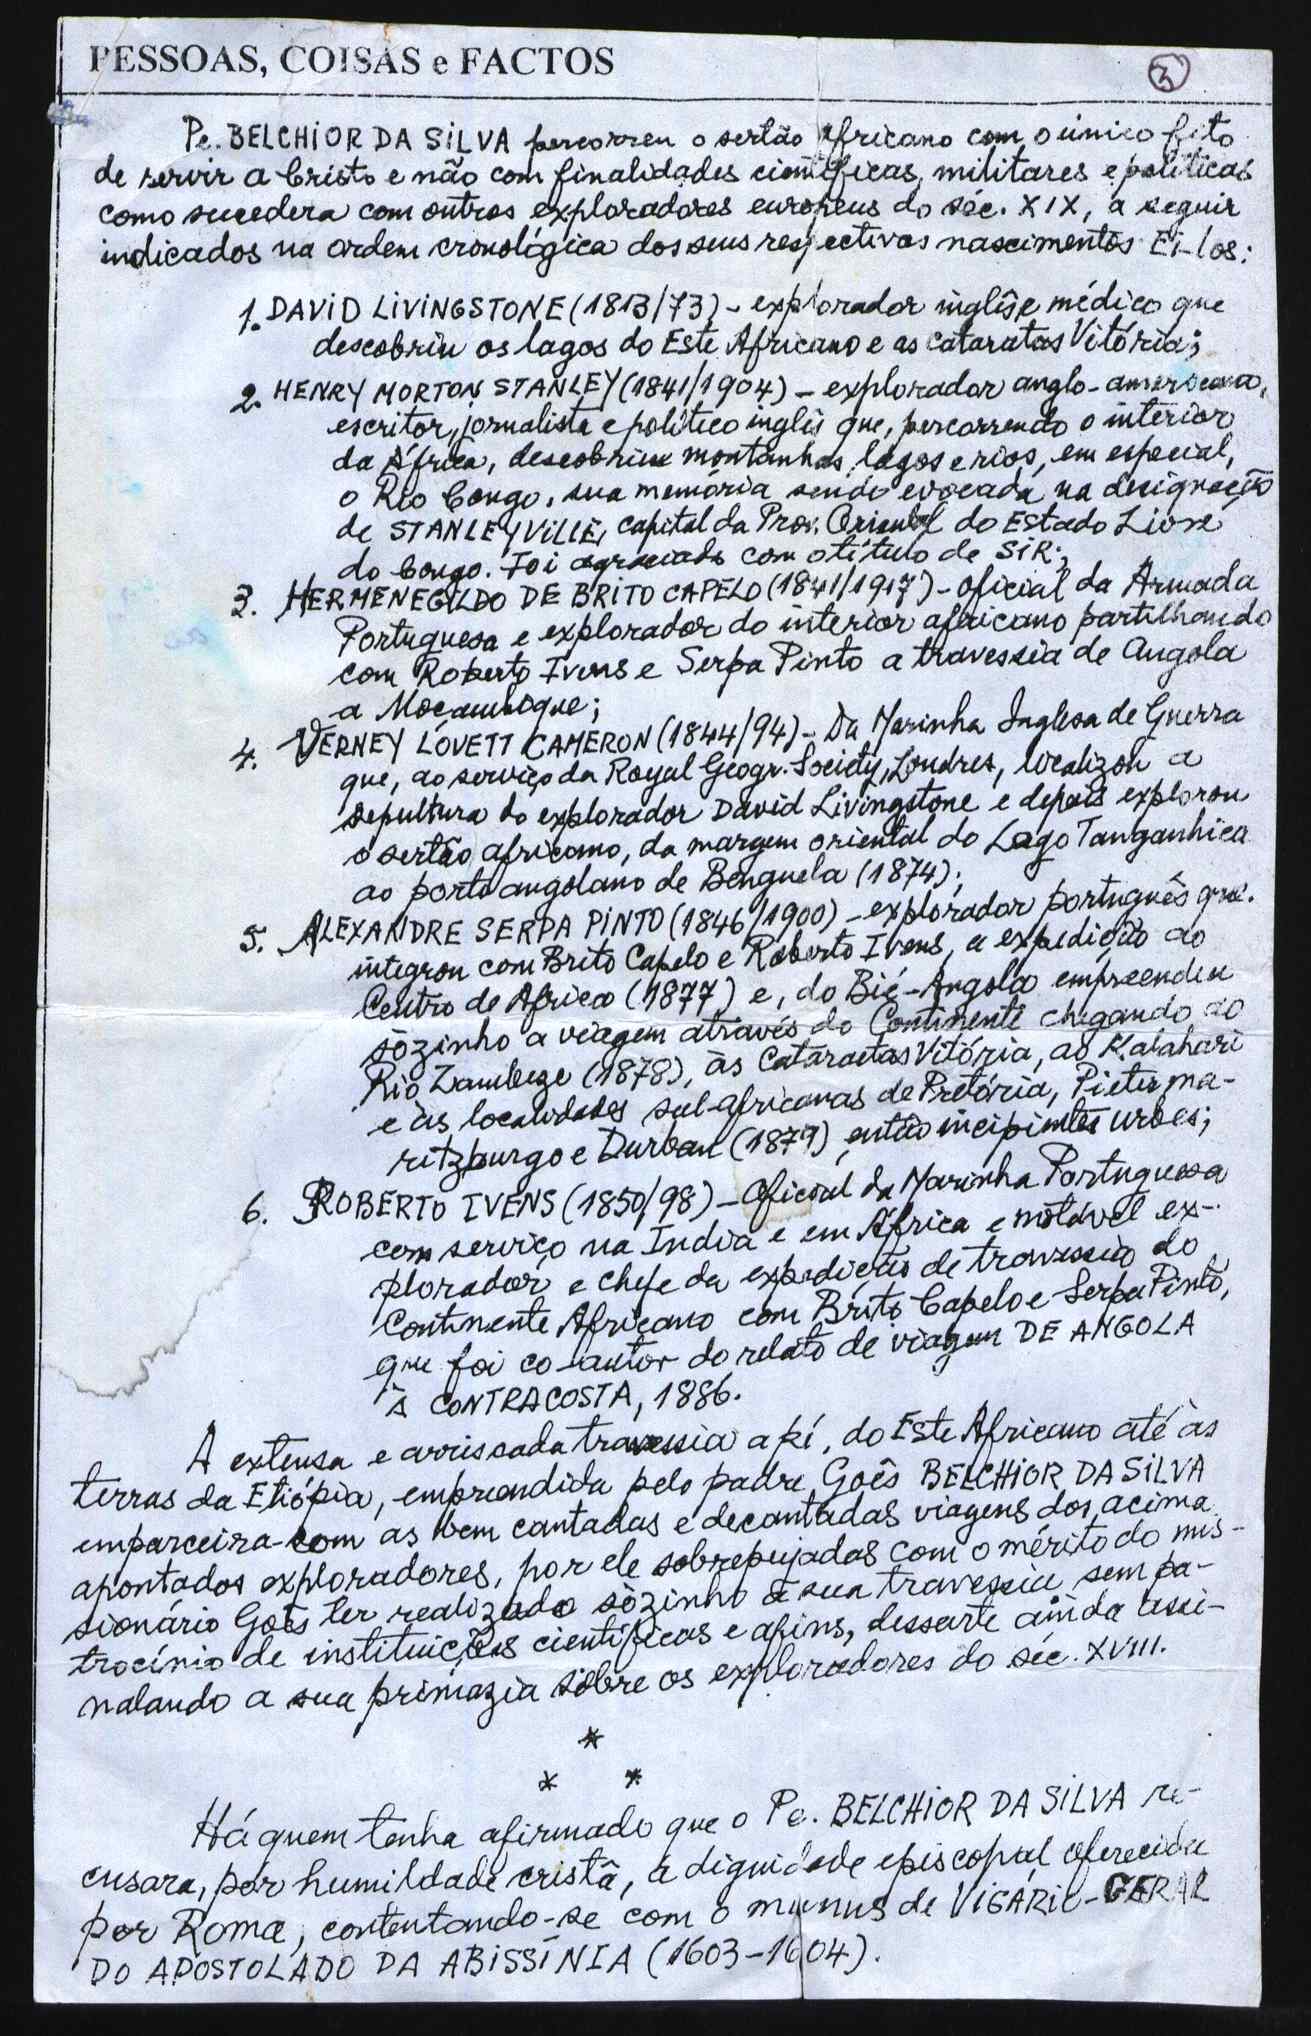 PESSOAS, COISAS e FACTOS
3
Pe. BELCHIOR DA SILVA percorreu o sertão africano com o único fito
de servir a Cristo e não com finalidades científicas, militares e políticas
como sucedera com outros exploradores europeus do séc. XIX, a seguir
indicados na ordem cronológica dos seus respectivos nascimentos Ei-los:
1. DAVID LIVINGSTONE (1813/73) - explorador inglês e médico que
descobriu os lagos do Este Africano e as cataratas Vitória;
2. HENRY MORTON STANLEY (1841/1904) - explorador anglo-americano,
escritor, jornalista e político inglês que, percorrendo o interior
da África, descobriu montanhas, lagos e rios, em especial,
o Rio Congo, sua memória sendo evocada na designação
de STANLEYVILLE, capital da Prov. Oriental do Estado Livre
do Congo. Foi agraciado com o título de SIR;
3. HERMENEGILDO DE BRITO CAPELO (1841/1917) - oficial da Armada
Portuguesa e explorador do interior africano partilhando
com Roberto Ivens e Serpa Pinto a travessia de Angola
a Moçambique;
4. VERNEY LOVETT CAMERON (1844/94) - Da Marinha Inglesa de Guerra
que, ao serviço da Royal Geogr. Society, Londres, localizou a
sepultura do explorador David Livingstone e depois explorou
o sertão africano, da margem oriental do Lago Tanganhica
ao porto angolano de Benguela (1874);
5. ALEXANDRE SERPA PINTO (1846/1900) - explorador português que
integrou com Brito Capelo e Roberto Ivens, a expedição ao
Centro de África (1877) e, do Bié-Angola empreendeu
sòzinho a viagem através do Continente chegando ao
Rio Zambeze (1878), às Cataratas Vitória, ao Kalahari
e às localidades sul-africanas de Pretória, Pieterma-
ritzburgo e Durban (1879), então incipientes urbes;
6. ROBERTO IVENS (1850/98) - Oficial da Marinha Portuguesa
com serviço na Índia e em África e notável ex-
plorador e chefe da expedição de travessia do
Continente Africano com Brito Capelo e Serpa Pinto,
que foi co-autor do relato de viagem DE ANGOLA
À CONTRACOSTA, 1886.
A extensa e arriscada travessia a pé, do Este Africano até às
terras da Etiópia, empreendida pelo padre Goês BELCHIOR DA SILVA
emparceira-com as bem cantadas e decantadas viagens dos acima
apontados exploradores, por ele sobrepujadas com o mérito do mis-
sionário Goês ter realizado sòzinho a sua travessia sem pa-
trocínio de instituições científicas e afins, dessarte ainda assi-
nalando a sua primazia sôbre os exploradores do séc. XVIII.
*
* *
Há quem tenha afirmado que o Pe. BELCHIOR DA SILVA re-
cusara, por humildade cristã, a dignidade episcopal oferecida
por Roma, contentando-se com o munus de VIGÁRIO-GERAL
DO APOSTOLADO DA ABISSÍNIA (1603-1604).